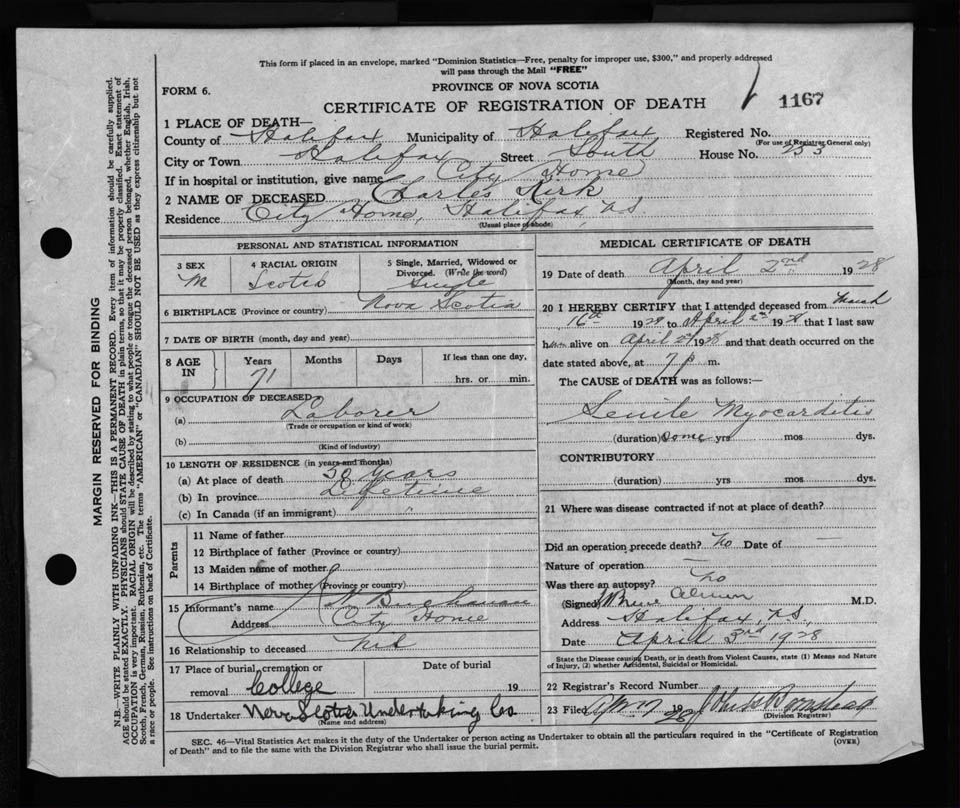 This form if placed in an envelope, marked "Dominion Statistics—Free, penalty for improper use, $300," and properly addressed
will pass through the Mail "FREE"
FORM 6.
PROVINCE OF NOVA SCOTIA
CERTIFICATE OF REGISTRATION OF DEATH
1167
1 PLACE OF DEATH—
County of Halifax Municipality of Halifax Registered No.
(For use of Registrar General only)
City or Town Halifax Street South House No. 253
If in hospital or institution, give name City Home
2 NAME OF DECEASED Charles Kirk
Residence City Home, Halifax, NS
(Usual place of abode)
PERSONAL AND STATISTICAL INFORMATION
3 SEX
M
4 RACIAL ORIGIN
Scotch
5 Single, Married, Widowed or
Divorced. (Write the word)
Single
6 BIRTHPLACE (Province or country) Nova Scotia
7 DATE OF BIRTH (month, day and year)
8 AGE
IN
Years
71
Months
Days
If less than one day,
hrs. or min.
9 OCCUPATION OF DECEASED
(a) Laborer
(Trade or occupation or kind of work)
(b)
(Kind of industry)
10 LENGTH OF RESIDENCE (in years and months)
(a) At place of death 30 years
(b) In province Lifetime
(c) In Canada (if an immigrant) "
Parents
11 Name of father
12 Birthplace of father (Province or country)
13 Maiden name of mother
14 Birthplace of mother (Province or country)
15 Informant's name W Buchanan
Address City Home
16 Relationship to deceased Nil
17 Place of burial, cremation or
removal College
Date of burial
19
18 Undertaker Nova Scotia Undertaking Co
(Name and address)
MEDICAL CERTIFICATE OF DEATH
19 Date of death April 2nd 1928
(Month, day and year)
20 I HEREBY CERTIFY that I attended deceased from March
16th 1928 to April 2nd 1928 that I last saw
him alive on April 2nd 1928 and that death occurred on the
date stated above, at 7 p m.
The CAUSE of DEATH was as follows:—
Senile Myocarditis
(duration) Some yrs mos dys.
CONTRIBUTORY
(duration) yrs mos dys.
21 Where was disease contracted if not at place of death?
Did an operation precede death? No Date of —
Nature of operation —
Was there an autopsy? No
(Signed) Almon M.D.
Address Halifax, NS,
Date April 3rd 1928
State the Disease causing Death, or in death from Violent Causes, state (1) Means and Nature
of Injury, (2) whether Accidental, Suicidal or Homicidal.
22 Registrar's Record Number
23 Filed 1928
(Division Registrar)
SEC. 46—Vital Statistics Act makes it the duty of the Undertaker or person acting as Undertaker to obtain all the particulars required in the "Certificate of Registration
of Death" and to file the same with the Division Registrar who shall issue the burial permit.
(OVER)
MARGIN RESERVED FOR BINDING
N.B.—WRITE PLAINLY WITH UNFADING INK—THIS IS A PERMANENT RECORD. Every item of information should be carefully supplied.
AGE should be stated EXACTLY. PHYSICIANS should STATE CAUSE OF DEATH in plain terms, so that it may be properly classified. Exact statement of
OCCUPATION is very important. RACIAL ORIGIN will be described by stating to what people or tongue the deceased person belonged, whether English, Irish,
Scotch, French, German, Russian, Ruthenian, etc. The terms "AMERICAN" or "CANADIAN" SHOULD NOT BE USED as they express citizenship but not
a race or people. See instructions on back of Certificate.